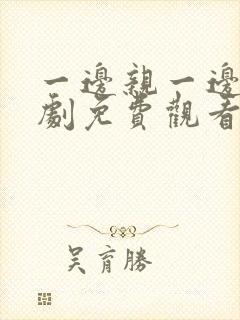 一邊親一邊
劇免費觀看
吴育勝